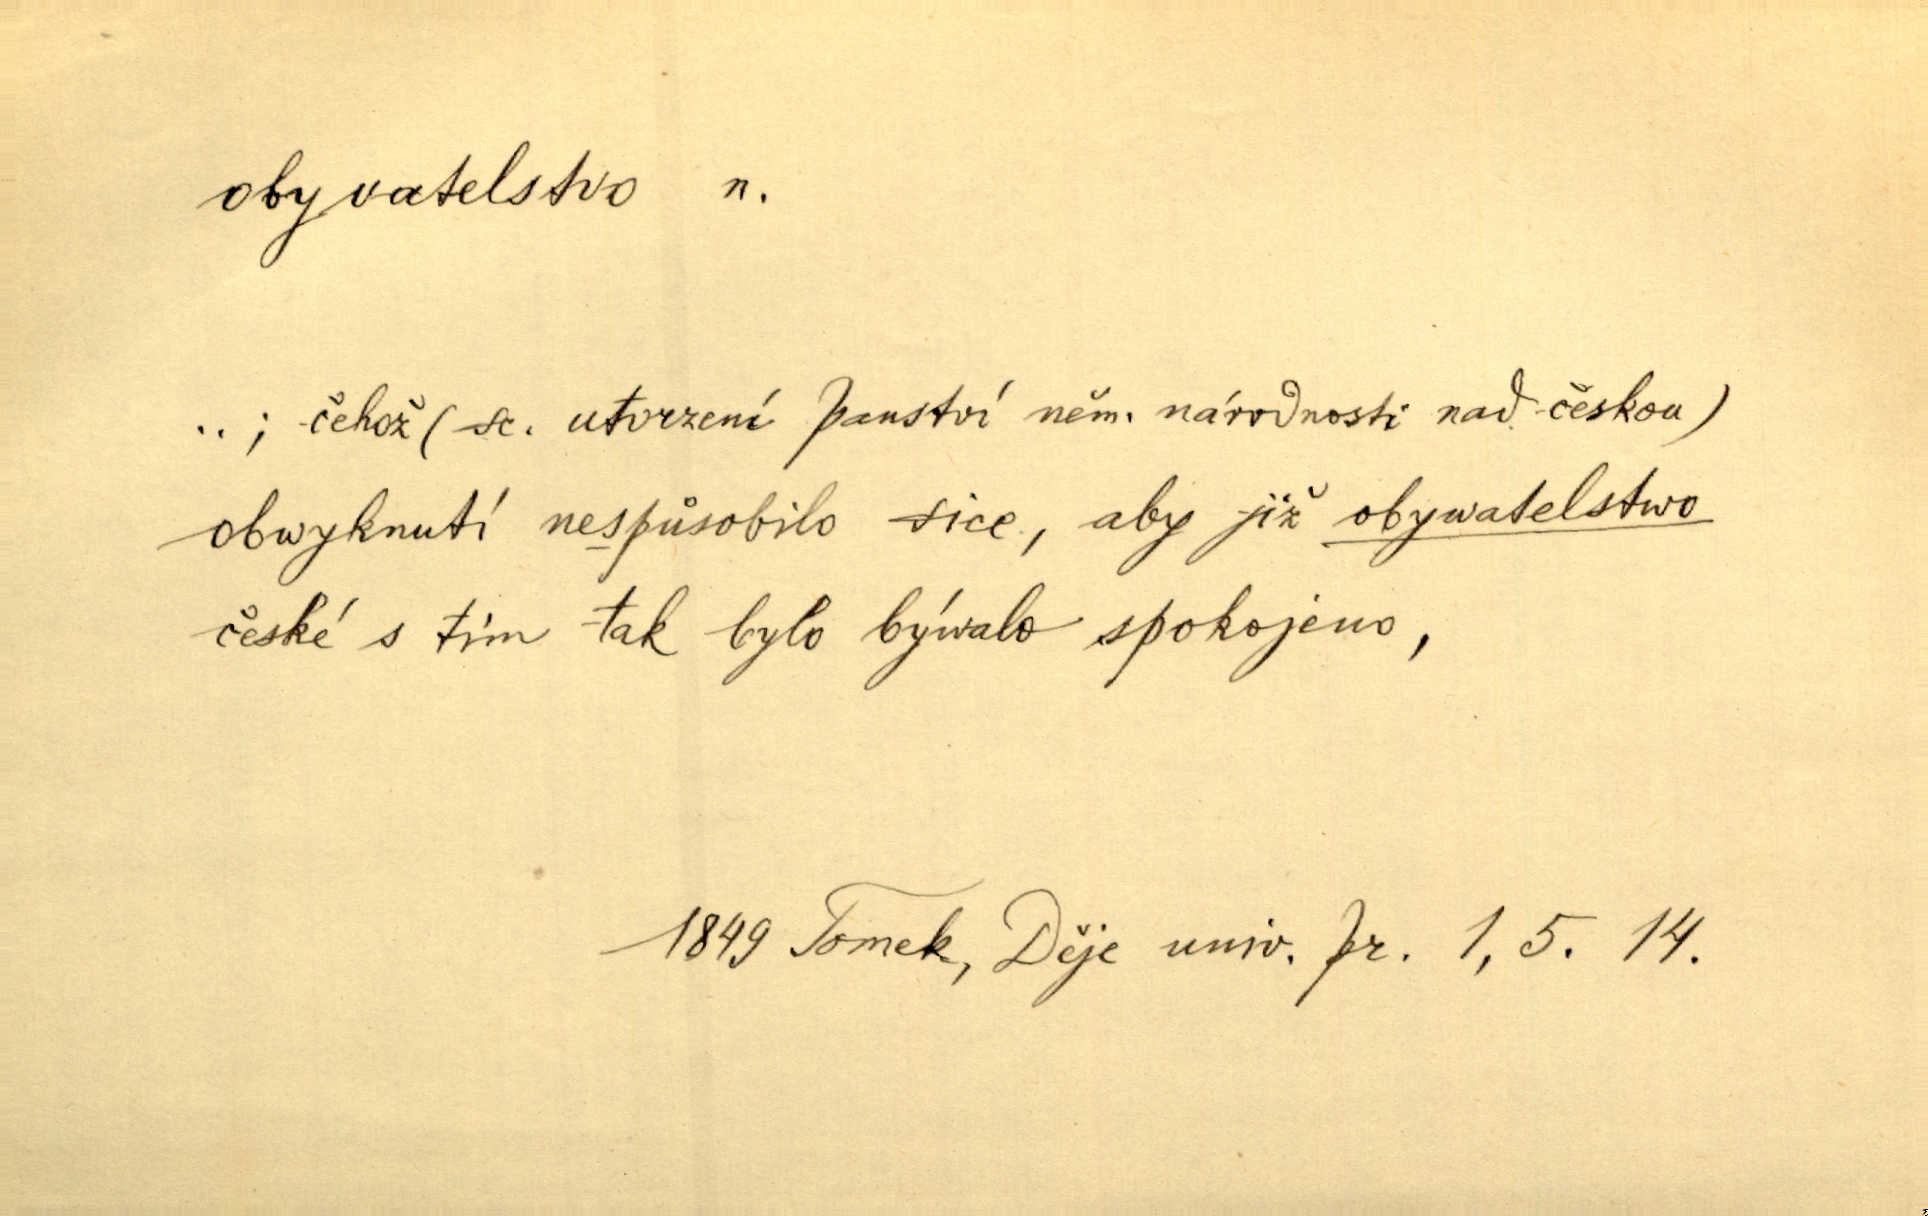 obyvatelstvo n.
..; čehož (sc. utvrzení panství něm. národnosti nad českou)
obwyknutí nespůsobilo sice, aby již obywatelstwo
české s tím tak bylo býwalo spokojeno,
1849 Tomek, Děje univ. pr. 1, 5. 14.